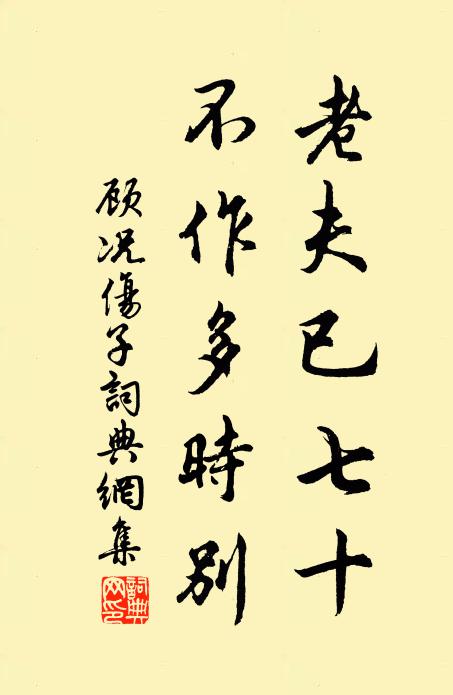 老夫已七十
不作多時別
顾况傷子詞典網集
詞典網印